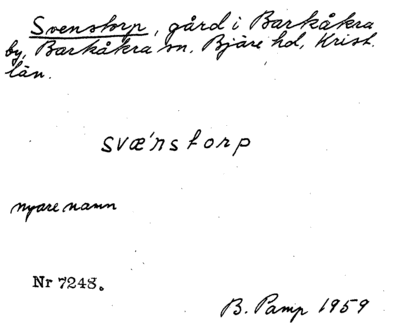 Svenstorp, gård i Barkåkra
by, Barkåkra sn. Bjäre hd, Krist.
län.
svæ'nstorp
nyare namn
Nr 7248.
B. Pamp 1959